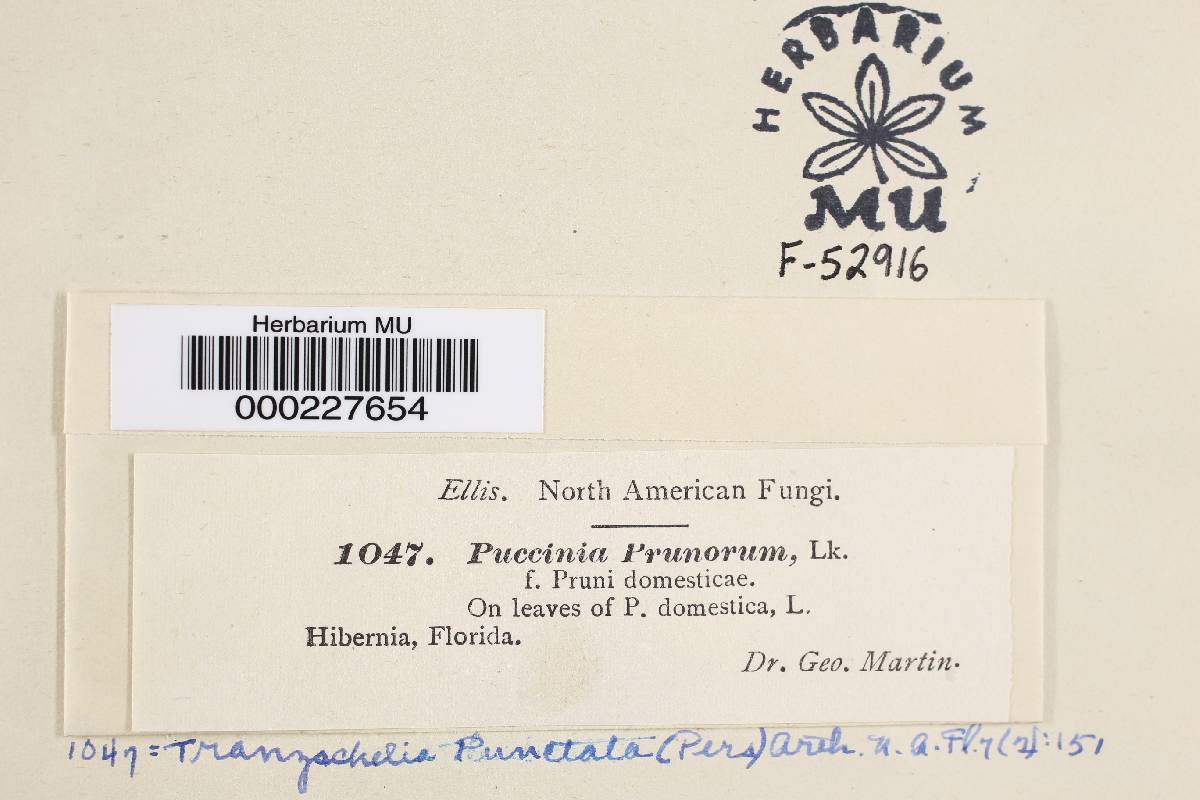 HERBARIUM
MU
F-52916
Herbarium MU
000227654
Ellis. North American Fungi.
1047. Puccinia Prunorum, Lk.
f. Pruni domesticae.
On leaves of P. domestica, L.
Hibernia, Florida.
Dr. Geo. Martin.
1047 = Tranzschelia Punctata (Pers) Arth. N. A. Fl. 7 (2): 151